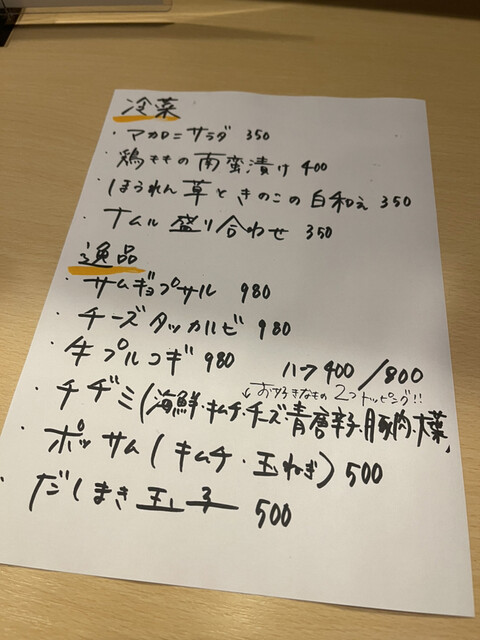 冷菜
・マカロニサラダ 350
・鶏ももの南蛮漬け 400
・ほうれん草ときのこの白和え 350
・ナムル盛り合わせ 350
逸品
・サムギョプサル 980
・チーズタッカルビ 980
・牛プルコギ 980
ハーフ400/800
↓お好きなもの2つトッピング!!
・チヂミ(海鮮・キムチ・チーズ・青唐辛子・豚肉・大葉)
・ポッサム(キムチ・玉ねぎ) 500
・だしまき玉子 500